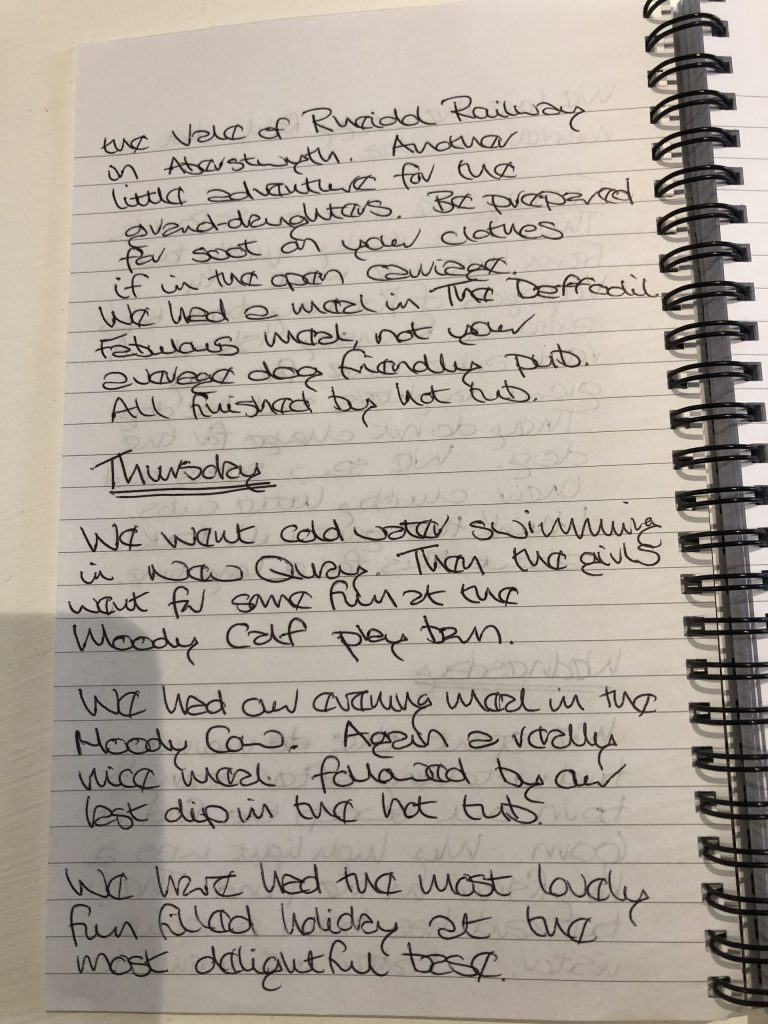 the Vale of Rheidol Railway
in Aberstwyth. Another
little adventure for the
grand-daughters. Be prepared
for soot on your clothes
if in the open carriage.
We had a meal in The Daffodil.
Fabulous meal, not your
average dog friendly pub.
All finished by hot tub.
Thursday
We went cold water swimming
in New Quay. Then the girls
went for some fun at the
Moody Calf play barn.
We had our evening meal in the
Moody Cow. Again a really
nice meal followed by our
last dip in the hot tub.
We have had the most lovely
fun filled holiday at the
most delightful base.